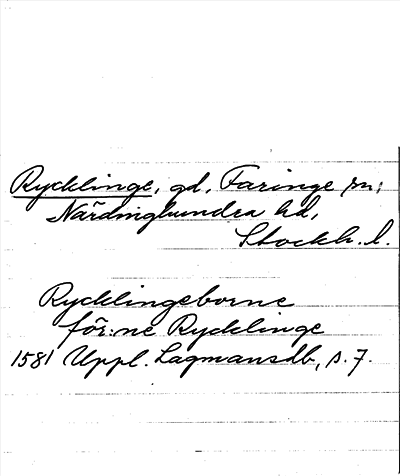 Rycklinge, gd, Faringe sn;
Närdinghundra hd,
Stockh. l.
Rycklingeborne
för:ne Rycklinge
1581 Uppl. Lagmansdb, s. 7.